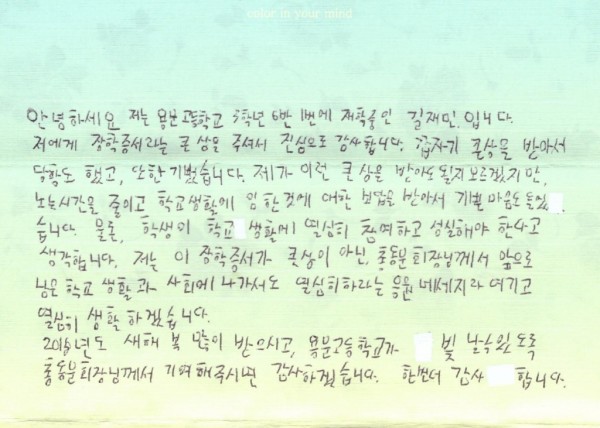 color in your mind
안녕하세요 저는 용문고등학교 3학년 6반 1번에 재학중인 길재민 입니다.
저에게 장학증서라는 큰 상을 주셔서 진심으로 감사합니다. 갑자기 큰상을 받아서
당황도 했고, 또한 기뻤습니다. 제가 이런 큰 상을 받아도 될지 모르겠지만,
노는시간을 줄이고 학교생활에 임한것에 대한 보답을 받아서 기쁜 마음도 들었
습니다. 물론, 학생이 학교 생활에 열심히 참여하고 성실해야 한다고
생각합니다. 저는 이 장학증서가 큰상이 아닌, 총동문회장님께서 앞으로
남은 학교 생활과 사회에 나가서도 열심히하라는 응원 메세지라 여기고
열심히 생활 하겠습니다.
2018년도 새해 복 많이 받으시고, 용문고등학교가 빛 날수있도록
총동문회장님께서 기여해주시면 감사하겠습니다. 한번더 감사 합니다.